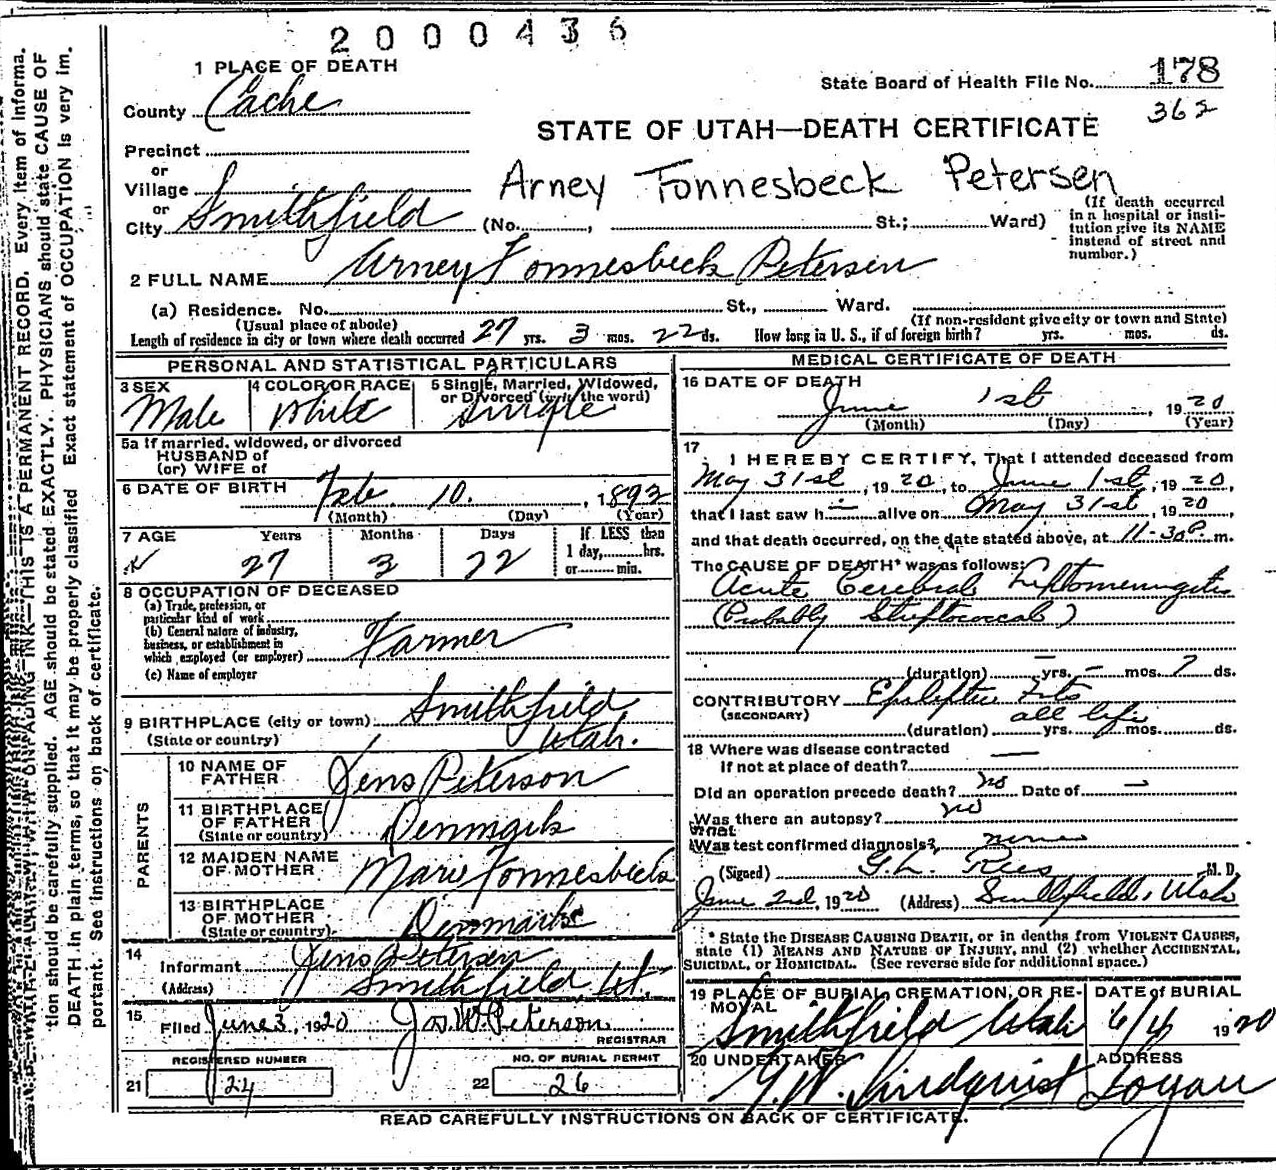 2000436
1 PLACE OF DEATH
State Board of Health File No. 178
County Cache
362
STATE OF UTAH—DEATH CERTIFICATE
Precinct
or
Village
Arney Fonnesbeck Petersen
or
City Smithfield (No. , St.; Ward)
(If death occurred in a hospital or insti-
tution give its NAME instead of street and number.)
2 FULL NAME Arney Fonnesbeck Petersen
(a) Residence. No. St., Ward.
(Usual place of abode) (If non-resident give city or town and State)
Length of residence in city or town where death occurred 27 yrs. 3 mos. 22 ds. How long in U. S., if of foreign birth? yrs. mos. ds.
PERSONAL AND STATISTICAL PARTICULARS
3 SEX 4 COLOR OR RACE 5 Single, Married, Widowed,
or Divorced (write the word)
Male White Single
5a If married, widowed, or divorced
HUSBAND of
(or) WIFE of
6 DATE OF BIRTH Feb 10. , 1892
(Month) (Day) (Year)
7 AGE Years Months Days If LESS than
1 day, hrs.
or min.
27 3 22
8 OCCUPATION OF DECEASED
(a) Trade, profession, or
particular kind of work
(b) General nature of industry,
business, or establishment in
which employed (or employer) Farmer
(c) Name of employer
9 BIRTHPLACE (city or town) Smithfield
(State or country) Utah.
PARENTS
10 NAME OF
FATHER Jens Peterson
11 BIRTHPLACE
OF FATHER
(State or country) Denmark
12 MAIDEN NAME
OF MOTHER Marie Fonnesbeck
13 BIRTHPLACE
OF MOTHER
(State or country) Denmark
14
Informant Jens Petersen
(Address) Smithfield, Ut.
15
Filed June 3, 1920 Jos W. Peterson
REGISTRAR
REGISTERED NUMBER NO. OF BURIAL PERMIT
21 24 22 26
MEDICAL CERTIFICATE OF DEATH
16 DATE OF DEATH
June 1st , 1920
(Month) (Day) (Year)
17
I HEREBY CERTIFY, That I attended deceased from
May 31st , 1920, to June 1st , 1920,
that I last saw h— alive on May 31st , 1920 ,
and that death occurred, on the date stated above, at 11-30P. m.
The CAUSE OF DEATH* was as follows:
Acute Cerebral Leptomeningitis
(Probably Streptococcal)
(duration) — yrs. — mos. 7 ds.
CONTRIBUTORY Epileptic Fits
(SECONDARY)
all life
(duration) yrs. mos. ds.
18 Where was disease contracted
If not at place of death? —
Did an operation precede death? no Date of —
Was there an autopsy? no
What
Was test confirmed diagnosis? none
(Signed) G. L. Rees M. D.
June 2nd, 1920 (Address) Smithfield, Utah
* State the DISEASE CAUSING DEATH, or in deaths from VIOLENT CAUSES,
state (1) MEANS AND NATURE OF INJURY, and (2) whether ACCIDENTAL,
SUICIDAL, or HOMICIDAL. (See reverse side for additional space.)
19 PLACE OF BURIAL, CREMATION, OR RE-
MOVAL DATE of BURIAL
Smithfield Utah 6/4 1920
20 UNDERTAKER ADDRESS
G. W. Lindquist Logan
READ CAREFULLY INSTRUCTIONS ON BACK OF CERTIFICATE.
THIS IS A PERMANENT RECORD. Every item of informa-
tion should be carefully supplied. AGE should be stated EXACTLY. PHYSICIANS should state CAUSE OF
DEATH in plain terms, so that it may be properly classified Exact statement of OCCUPATION is very im-
portant. See instructions on back of certificate.